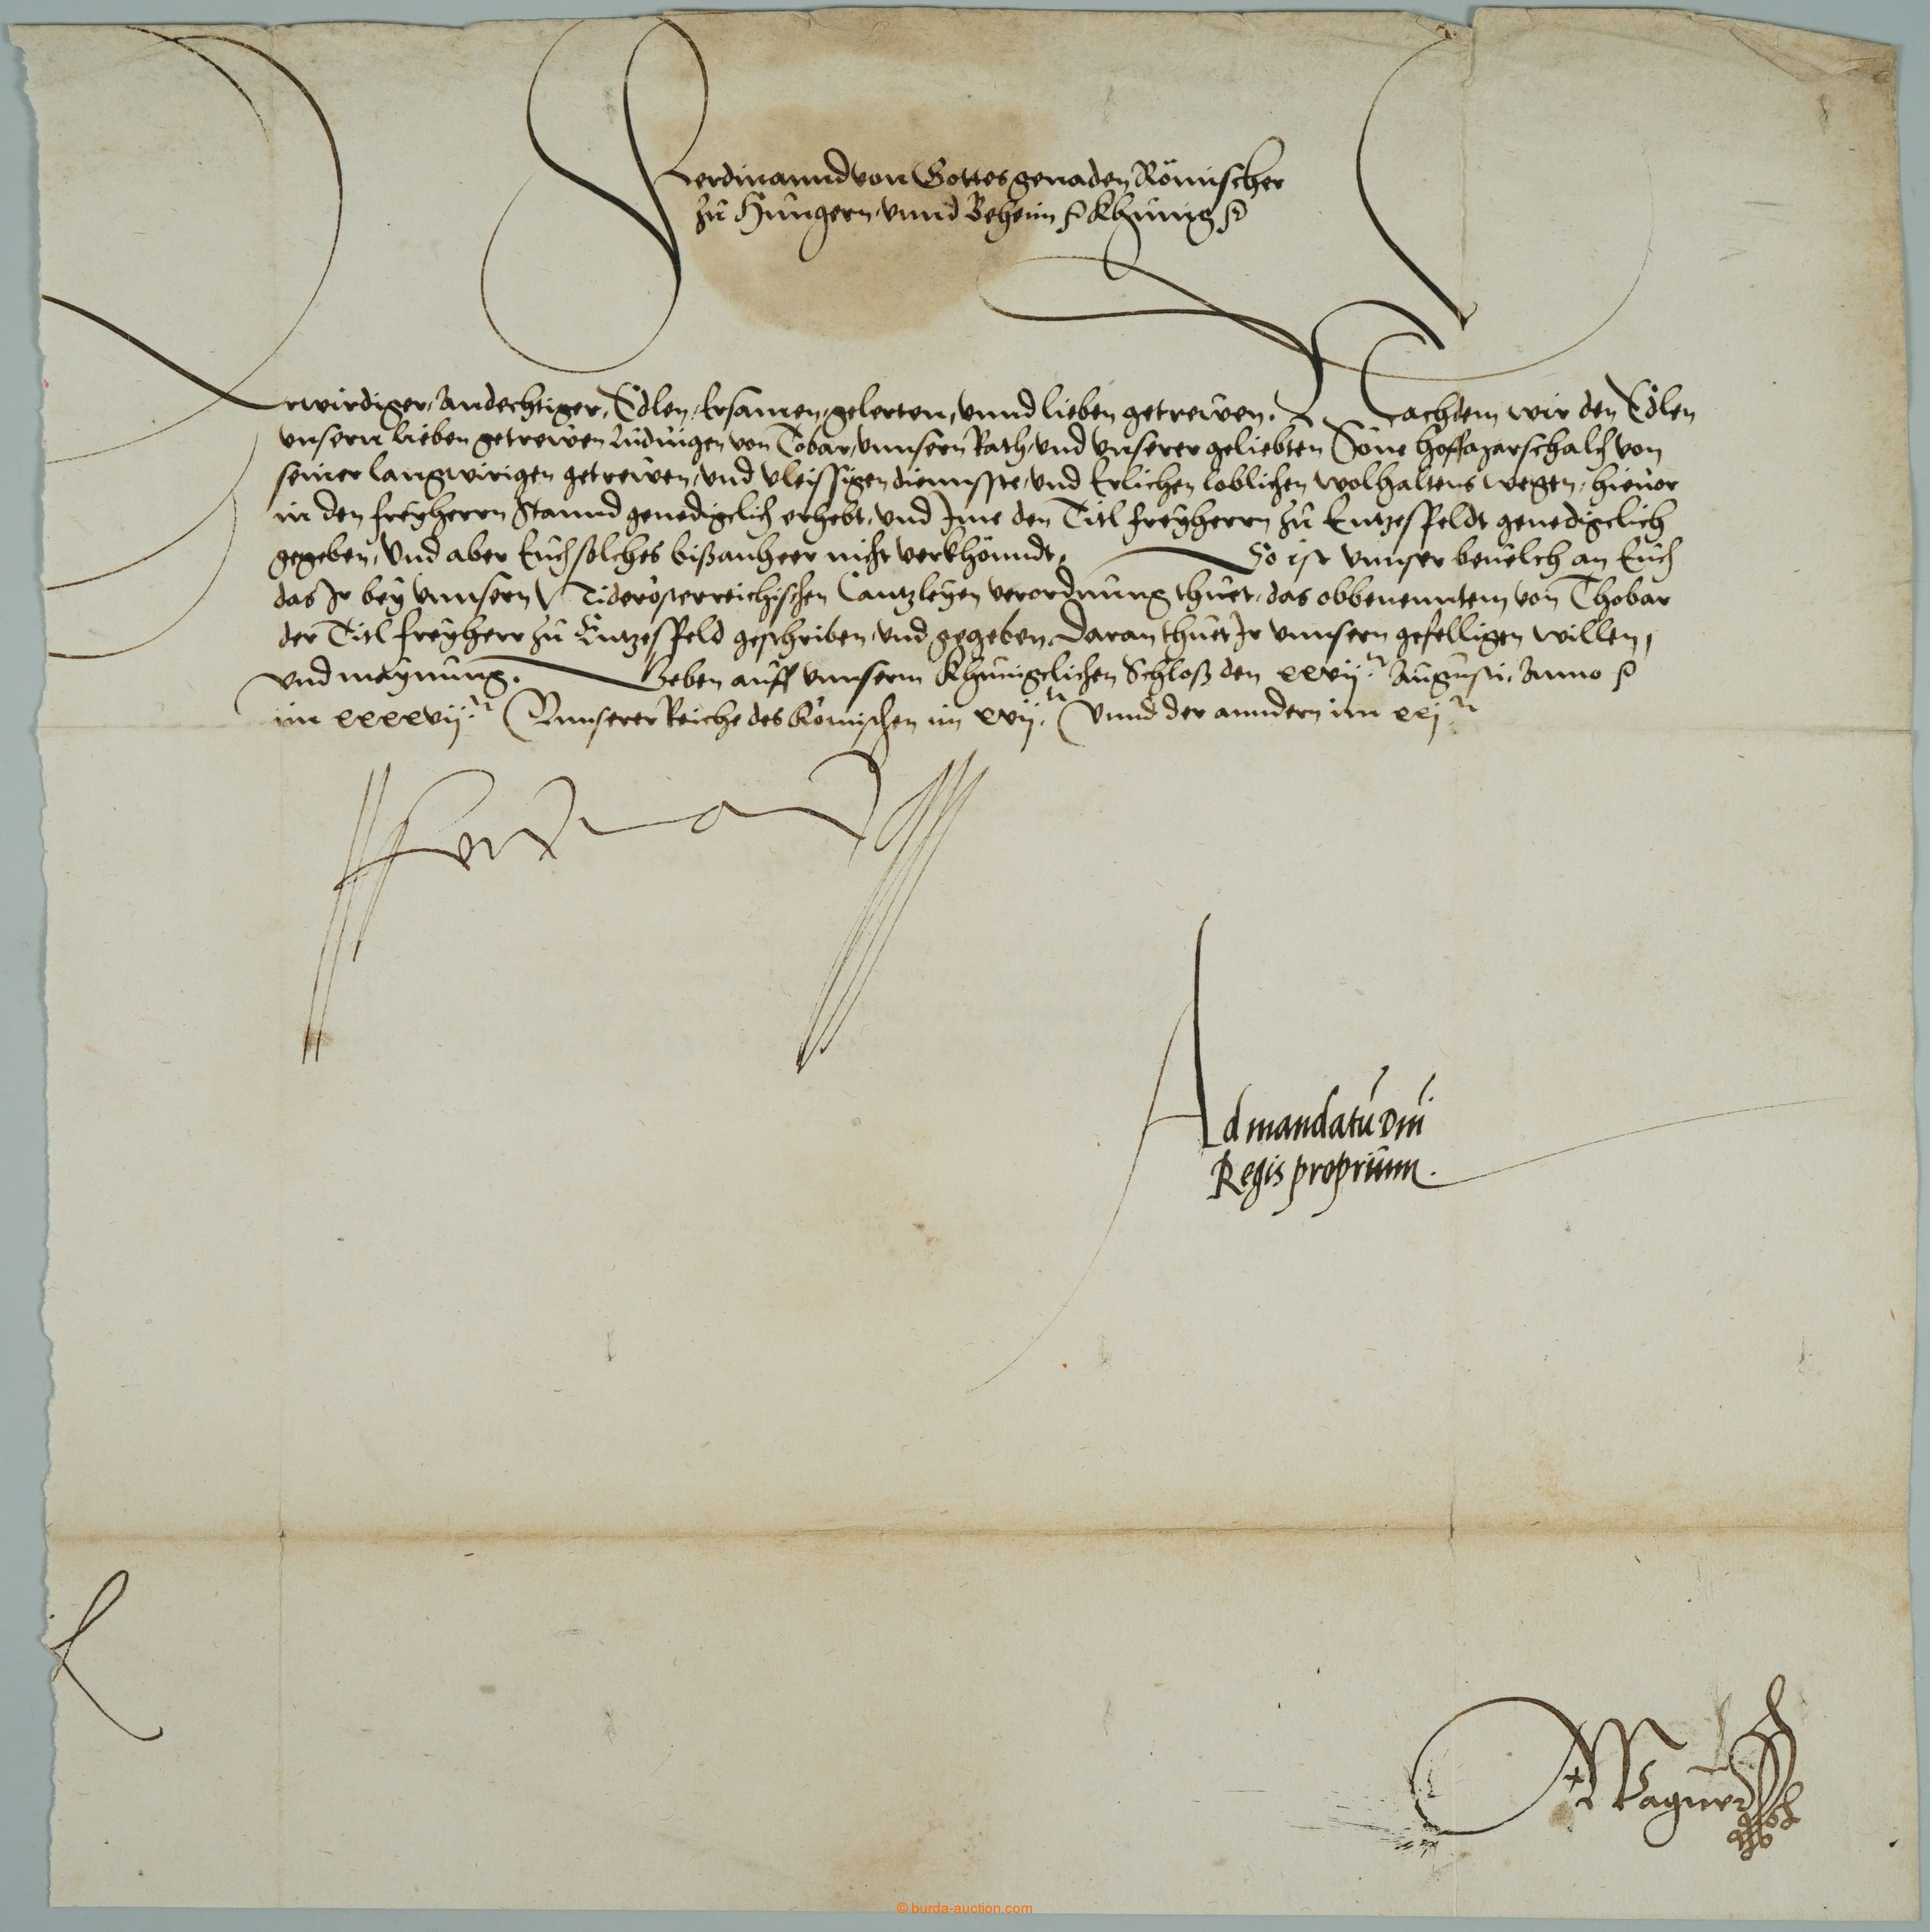 Ferdinannd von Gottes genaden Römischer
zu Hungern, vnnd Beheim (etc.) Khünig (etc.)
Erwirdiger, Andechtiger, Edlen, Ersamen, gelerten, vnnd lieben getrewen. Nachdem wir den Edlen
vnsern lieben getrewen von Tobar, vnnsern Rath, vnd vnserer geliebten Söne von
seiner langwirigen getrewen, vnd vleissigen diennsste, vnd Erlichen loblichen wolhaltens wegen, hieuor
in den freyherrn Stannd genedigclich erhebt, vnd Ime den Titl freyherrn zu Entzesfeldt genedigclich
gegeben, Vnd aber Euch solches bißanheer nicht verkhönndt, So ist vnnser beuelch an Euch
das Ir bey vnnsern Niderösterreichischen Cantzleyen verordnung thuet, das obbenenntem von Thobar
der Titl freyherr zu Entzesfeld geschriben, vnd gegeben, Daran thuet Ir vnnsern gefelligen willen,
vnd maynung. Geben auff vnnserm Khünigclichen Schloß den xxvii.ten Augusti, Anno (etc.)
im xxxxvii.ten Vnnserer Reiche des Römischen im xvii.ten Vnnd der anndern im xxj.ten
Ferdinand
Ad mandatū Dnī
Regis proprium.
Wagner
© burda-auction.com